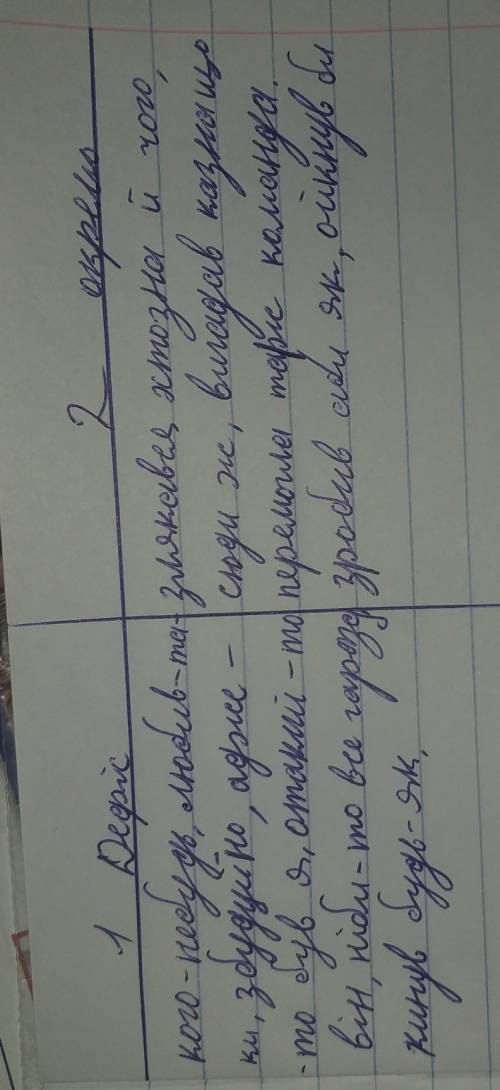 1 Дефіс
2 окремо
кого-небудь, любив-та-
ки, збудуй-но, адже-
-то був я, отакий-то
він, ніби-то все гаразд
кинув будь-як,
злякався хтозна й чого,
сюди ж, вигадав казна що
перемогла таж команда.
зробив аби як, ойкнув би